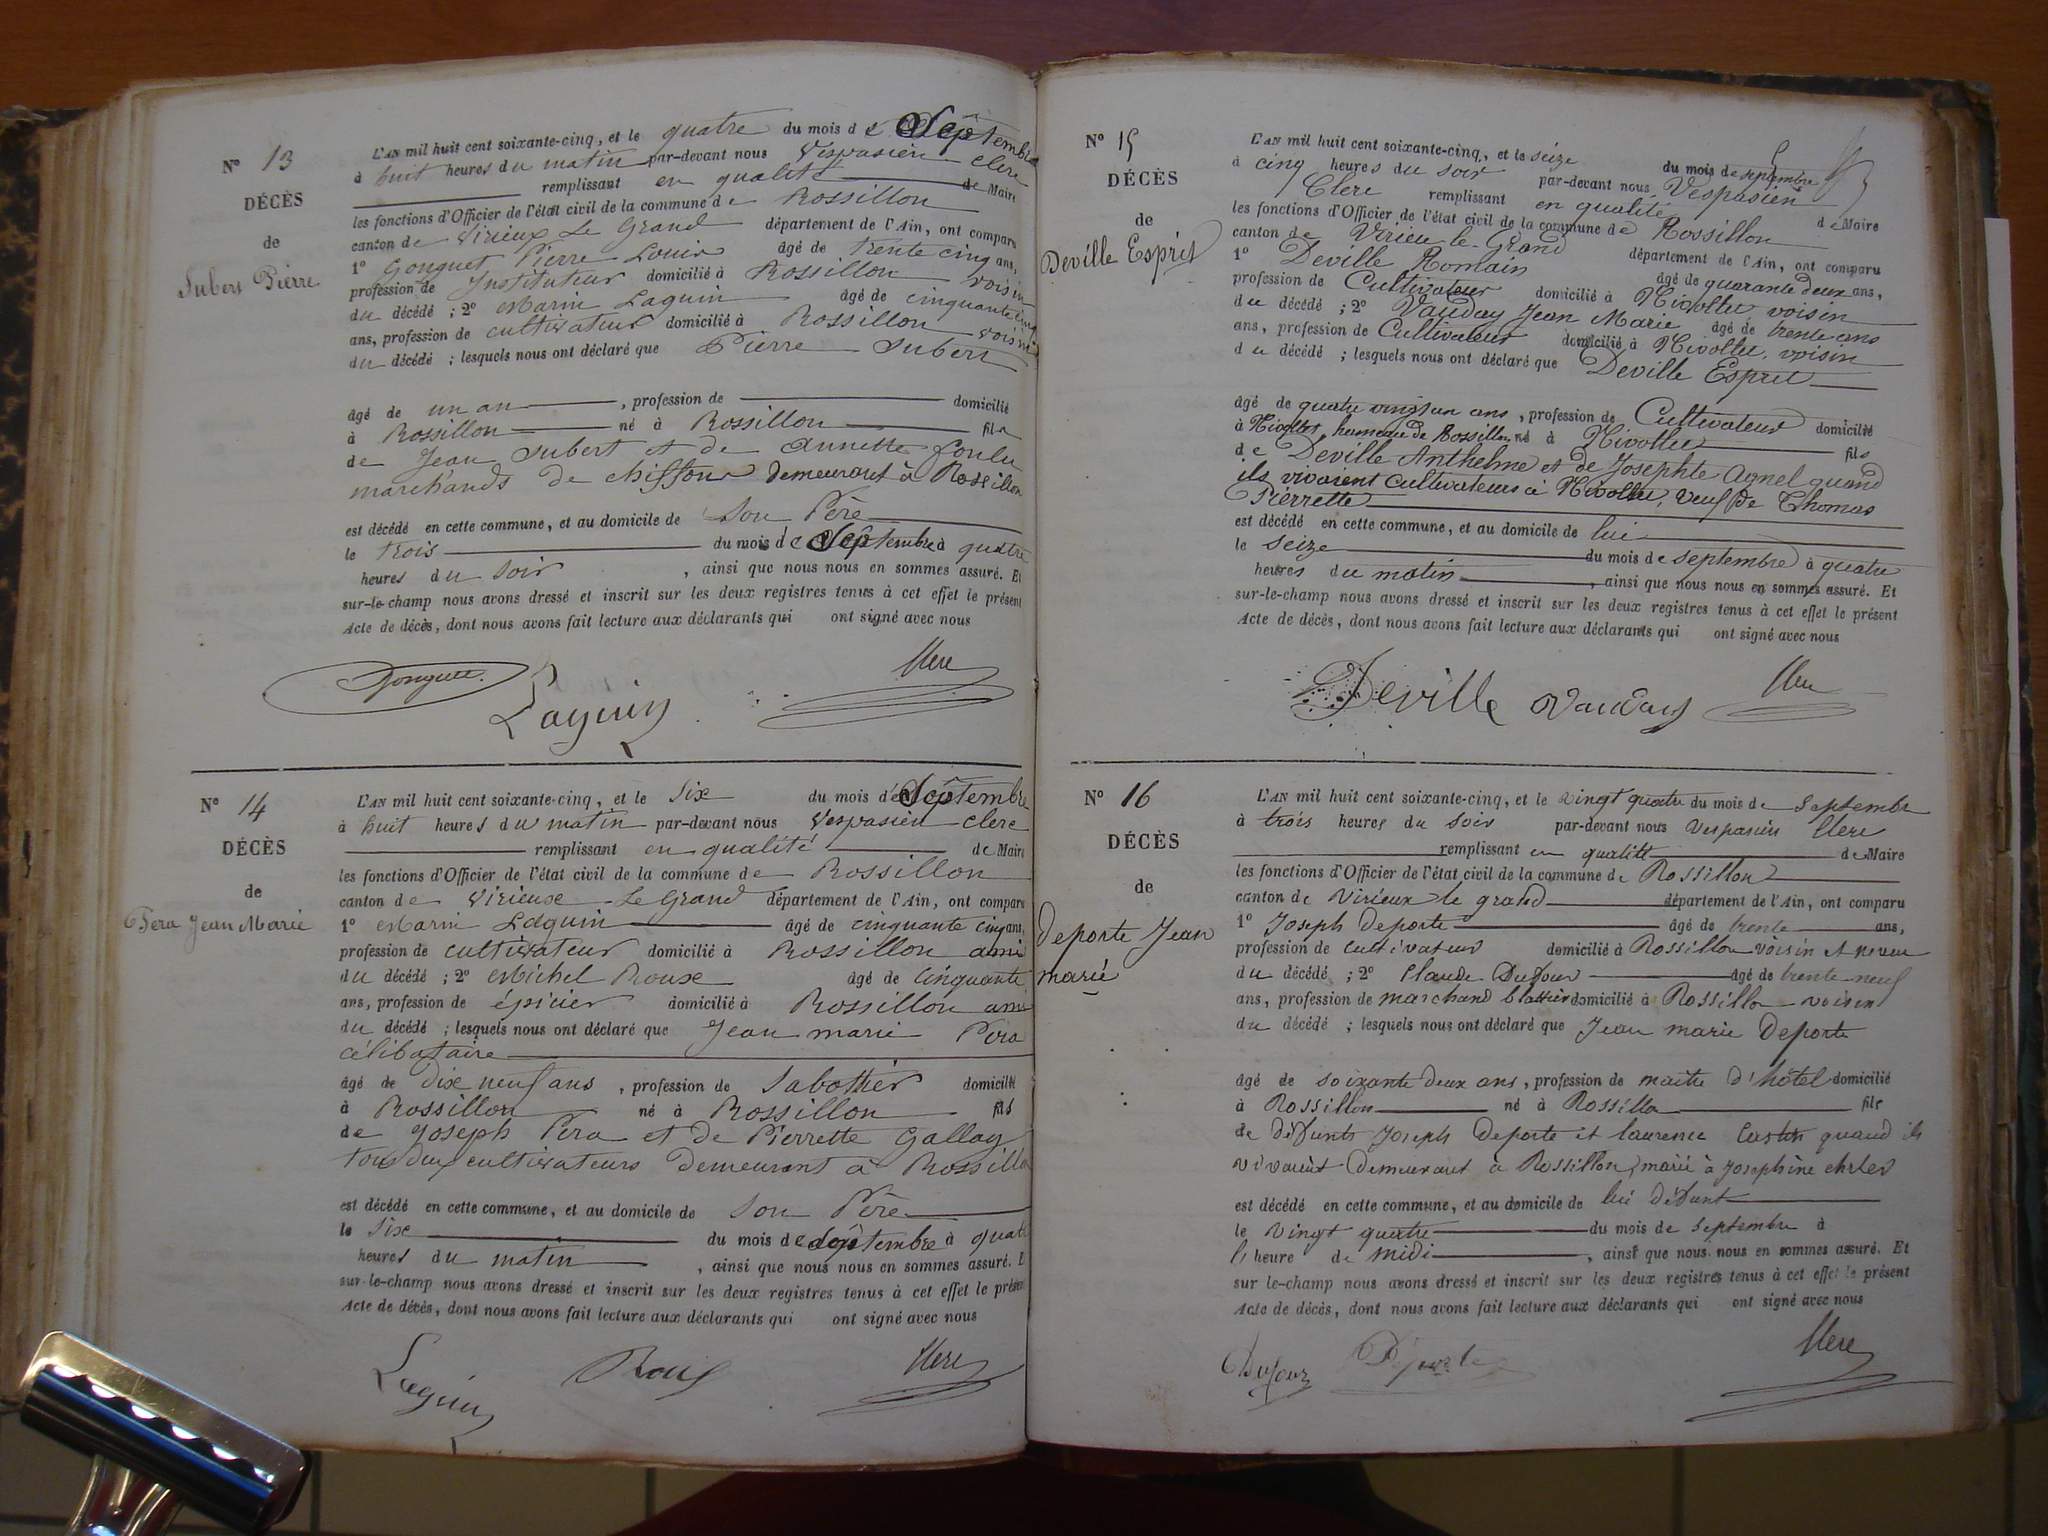 N° 13
DÉCÈS
de
Subert Pierre
L'AN mil huit cent soixante-cinq, et le quatre du mois de Septembre
à huit heures du matin par-devant nous Vespasien Clerc
remplissant en qualité de Maire
les fonctions d'Officier de l'état civil de la commune de Rossillon
canton de Virieux Le Grand département de l'Ain, ont comparu
1° Gonguet Pierre Louis âgé de trente cinq ans,
profession de Instituteur domicilié à Rossillon voisin
du décédé ; 2° Marin Laguin âgé de cinquante cinq
ans, profession de cultivateur domicilié à Rossillon voisin
du décédé ; lesquels nous ont déclaré que Pierre Subert
âgé de un an , profession de domicilié
à Rossillon né à Rossillon fils
de Jean Subert et de Annette
marchands de chiffons demeurant à Rossillon
est décédé en cette commune, et au domicile de Son Père
le trois du mois de Septembre à quatre
heures du soir , ainsi que nous nous en sommes assuré. Et
sur-le-champ nous avons dressé et inscrit sur les deux registres tenus à cet effet le présent
Acte de décès, dont nous avons fait lecture aux déclarants qui ont signé avec nous
Gonguet Laguin Clerc
N° 14
DÉCÈS
de
Pera Jean Marie
L'AN mil huit cent soixante-cinq, et le Six du mois de Septembre
à huit heures du matin par-devant nous Vespasien Clerc
remplissant en qualité de Maire
les fonctions d'Officier de l'état civil de la commune de Rossillon
canton de Virieux Le Grand département de l'Ain, ont comparu
1° Marin Laguin âgé de cinquante cinq ans,
profession de cultivateur domicilié à Rossillon ami
du décédé ; 2° Michel Roux âgé de cinquante
ans, profession de épicier domicilié à Rossillon ami
du décédé ; lesquels nous ont déclaré que Jean marie Pera
célibataire
âgé de dix neuf ans , profession de Sabottier domicilié
à Rossillon né à Rossillon fils
de Joseph Pera et de Pierrette Gallay
tous deux cultivateurs demeurant à Rossillon
est décédé en cette commune, et au domicile de Son Père
le Six du mois de septembre à quatre
heures du matin , ainsi que nous nous en sommes assuré. E
sur-le-champ nous avons dressé et inscrit sur les deux registres tenus à cet effet le présen
Acte de décès, dont nous avons fait lecture aux déclarants qui ont signé avec nous
Laguin Roux Clerc
N° 15
DÉCÈS
de
Deville Esprit
L'AN mil huit cent soixante-cinq, et le seize du mois de septembre
à cinq heures du soir par-devant nous Vespasien
Clerc remplissant en qualité de Maire
les fonctions d'Officier de l'état civil de la commune de Rossillon
canton de Virieu-le-Grand département de l'Ain, ont comparu
1° Deville Romain âgé de quarante deux ans,
profession de Cultivateur domicilié à Nivollet voisin
du décédé ; 2° Vauday Jean Marie âgé de trente ans
ans, profession de Cultivateur domicilié à Nivollet, voisin
du décédé ; lesquels nous ont déclaré que Deville Esprit
âgé de quatre vingt un ans , profession de Cultivateur domicilié
à Nivollet, hameau de Rossillon né à Nivollet fils
de Deville Anthelme et de Josephte Agnel quand
ils vivaient Cultivateurs à Nivollet, veuf de Thomas
Pierrette
est décédé en cette commune, et au domicile de lui
le seize du mois de septembre à quatre
heures du matin , ainsi que nous nous en sommes assuré. Et
sur-le-champ nous avons dressé et inscrit sur les deux registres tenus à cet effet le présent
Acte de décès, dont nous avons fait lecture aux déclarants qui ont signé avec nous
Deville Vauday Clerc
N° 16
DÉCÈS
de
Deporte Jean
marie
L'AN mil huit cent soixante-cinq, et le vingt quatre du mois de Septembre
à trois heures du soir par-devant nous Vespasien Clerc
remplissant en qualité de Maire
les fonctions d'Officier de l'état civil de la commune de Rossillon
canton de Virieux le grand département de l'Ain, ont comparu
1° Joseph Deporte âgé de trente ans,
profession de cultivateur domicilié à Rossillon voisin et neveu
du décédé ; 2° Claude Dufour âgé de trente-neuf
ans, profession de marchand blattier domicilié à Rossillon voisin
du décédé ; lesquels nous ont déclaré que Jean marie Deporte
âgé de soixante deux ans, profession de maître d'hôtel domicilié
à Rossillon né à Rossillon fils
de défunts Joseph Deporte et laurence quand ils
vivaient demeurant à Rossillon, marié à Josephine
est décédé en cette commune, et au domicile de lui défunt
le vingt quatre du mois de septembre à
l'heure de midi , ainsi que nous nous en sommes assuré. Et
sur-le-champ nous avons dressé et inscrit sur les deux registres tenus à cet effet le présent
Acte de décès, dont nous avons fait lecture aux déclarants qui ont signé avec nous
Dufour Deporte Clerc